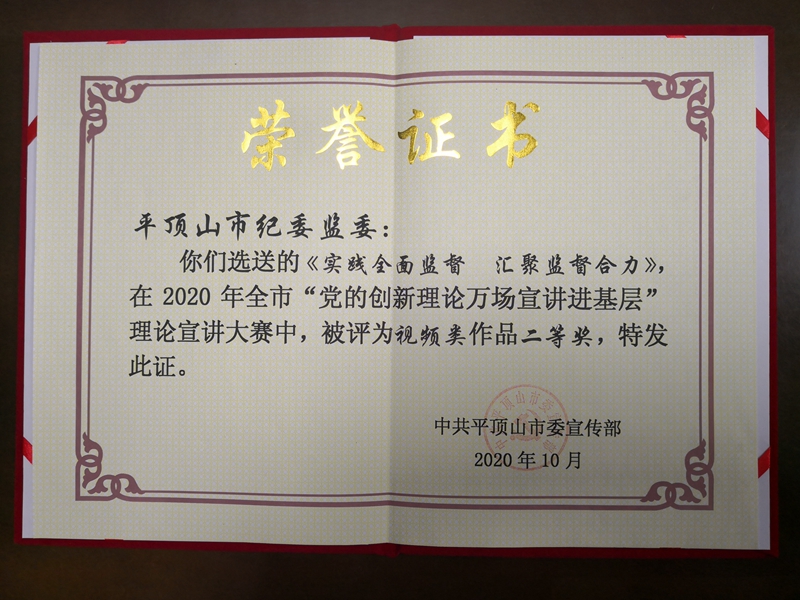 荣誉证书
平顶山市纪委监委：
你们选送的《实践全面监督　汇聚监督合力》，
在 2020 年全市“党的创新理论万场宣讲进基层”
理论宣讲大赛中，被评为视频类作品二等奖，特发
此证。
中共平顶山市委宣传部
2020 年 10 月